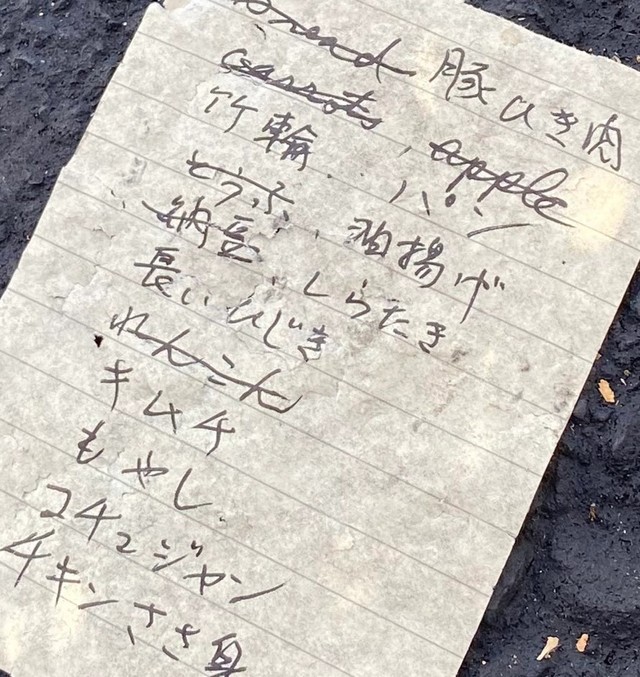 bread 豚ひき肉
carrots, apple
竹輪. パン
とうふ. 油揚げ
納豆. しらたき
長いひじき
れんこん
キムチ
もやし.
コチュジャン
チキンささ身